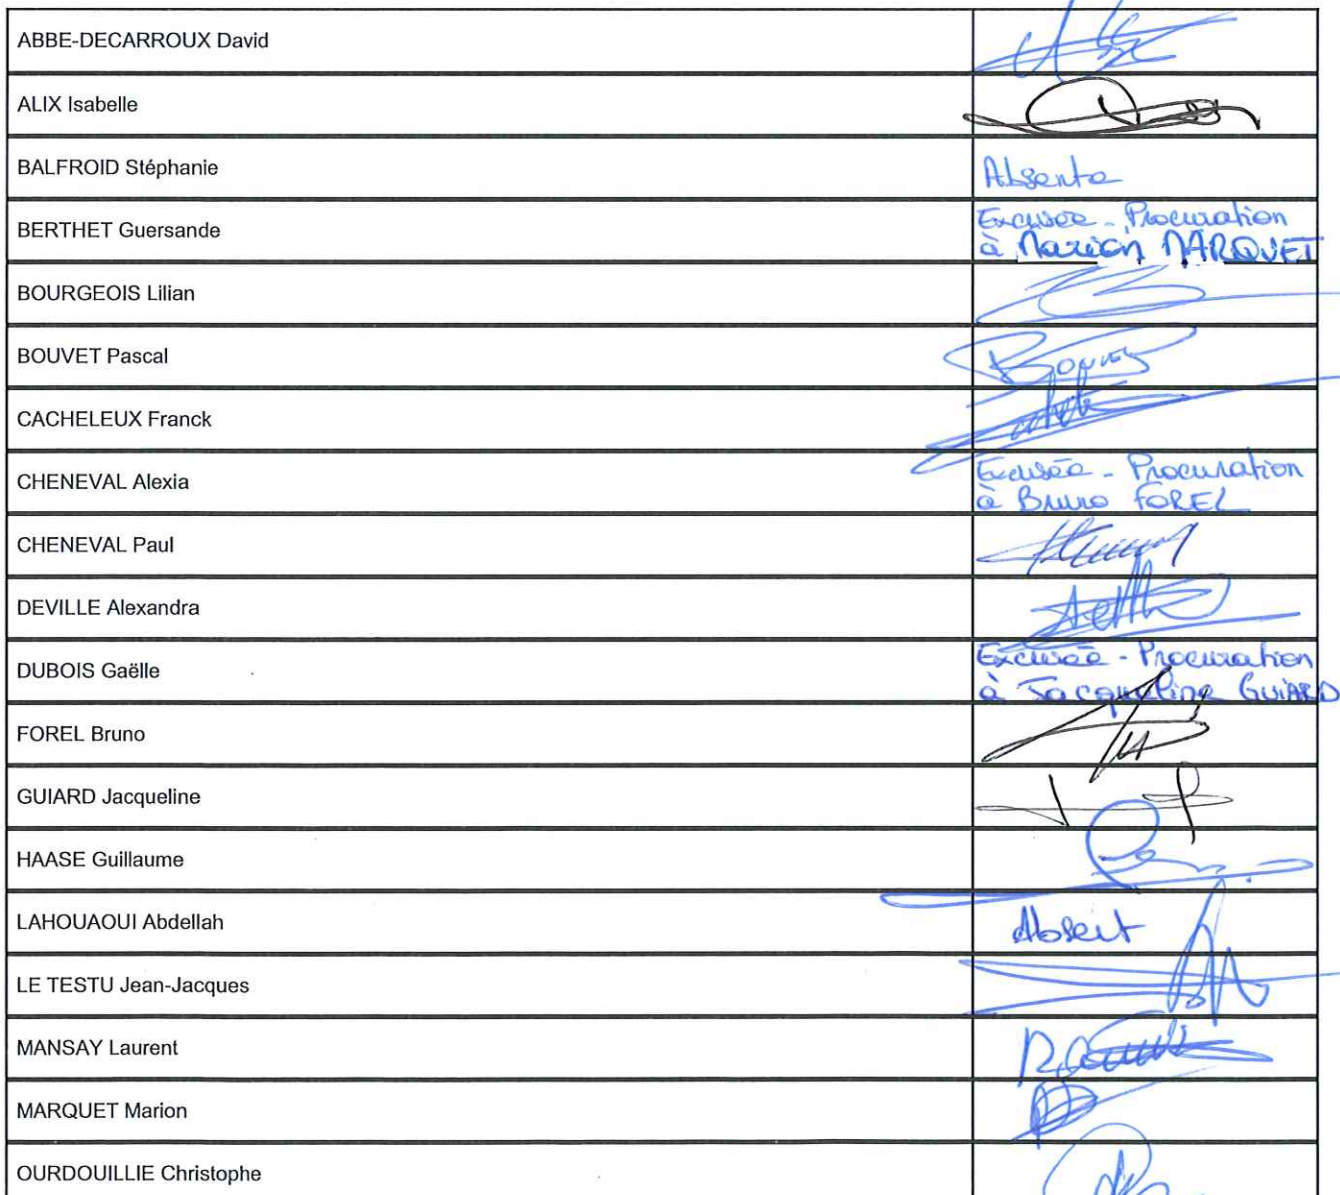 ABBE-DECARROUX David
ALIX Isabelle
BALFROID Stéphanie
Absente
BERTHET Guersande
Excusée - Procuration
à Marion MARQUET
BOURGEOIS Lilian
BOUVET Pascal
Bouvet
CACHELEUX Franck
CHENEVAL Alexia
Excusée - Procuration
à Bruno FOREL
CHENEVAL Paul
DEVILLE Alexandra
DUBOIS Gaëlle
Excusée - Procuration
à Jacqueline GUIARD
FOREL Bruno
GUIARD Jacqueline
HAASE Guillaume
LAHOUAOUI Abdellah
Absent
LE TESTU Jean-Jacques
MANSAY Laurent
MARQUET Marion
OURDOUILLIE Christophe